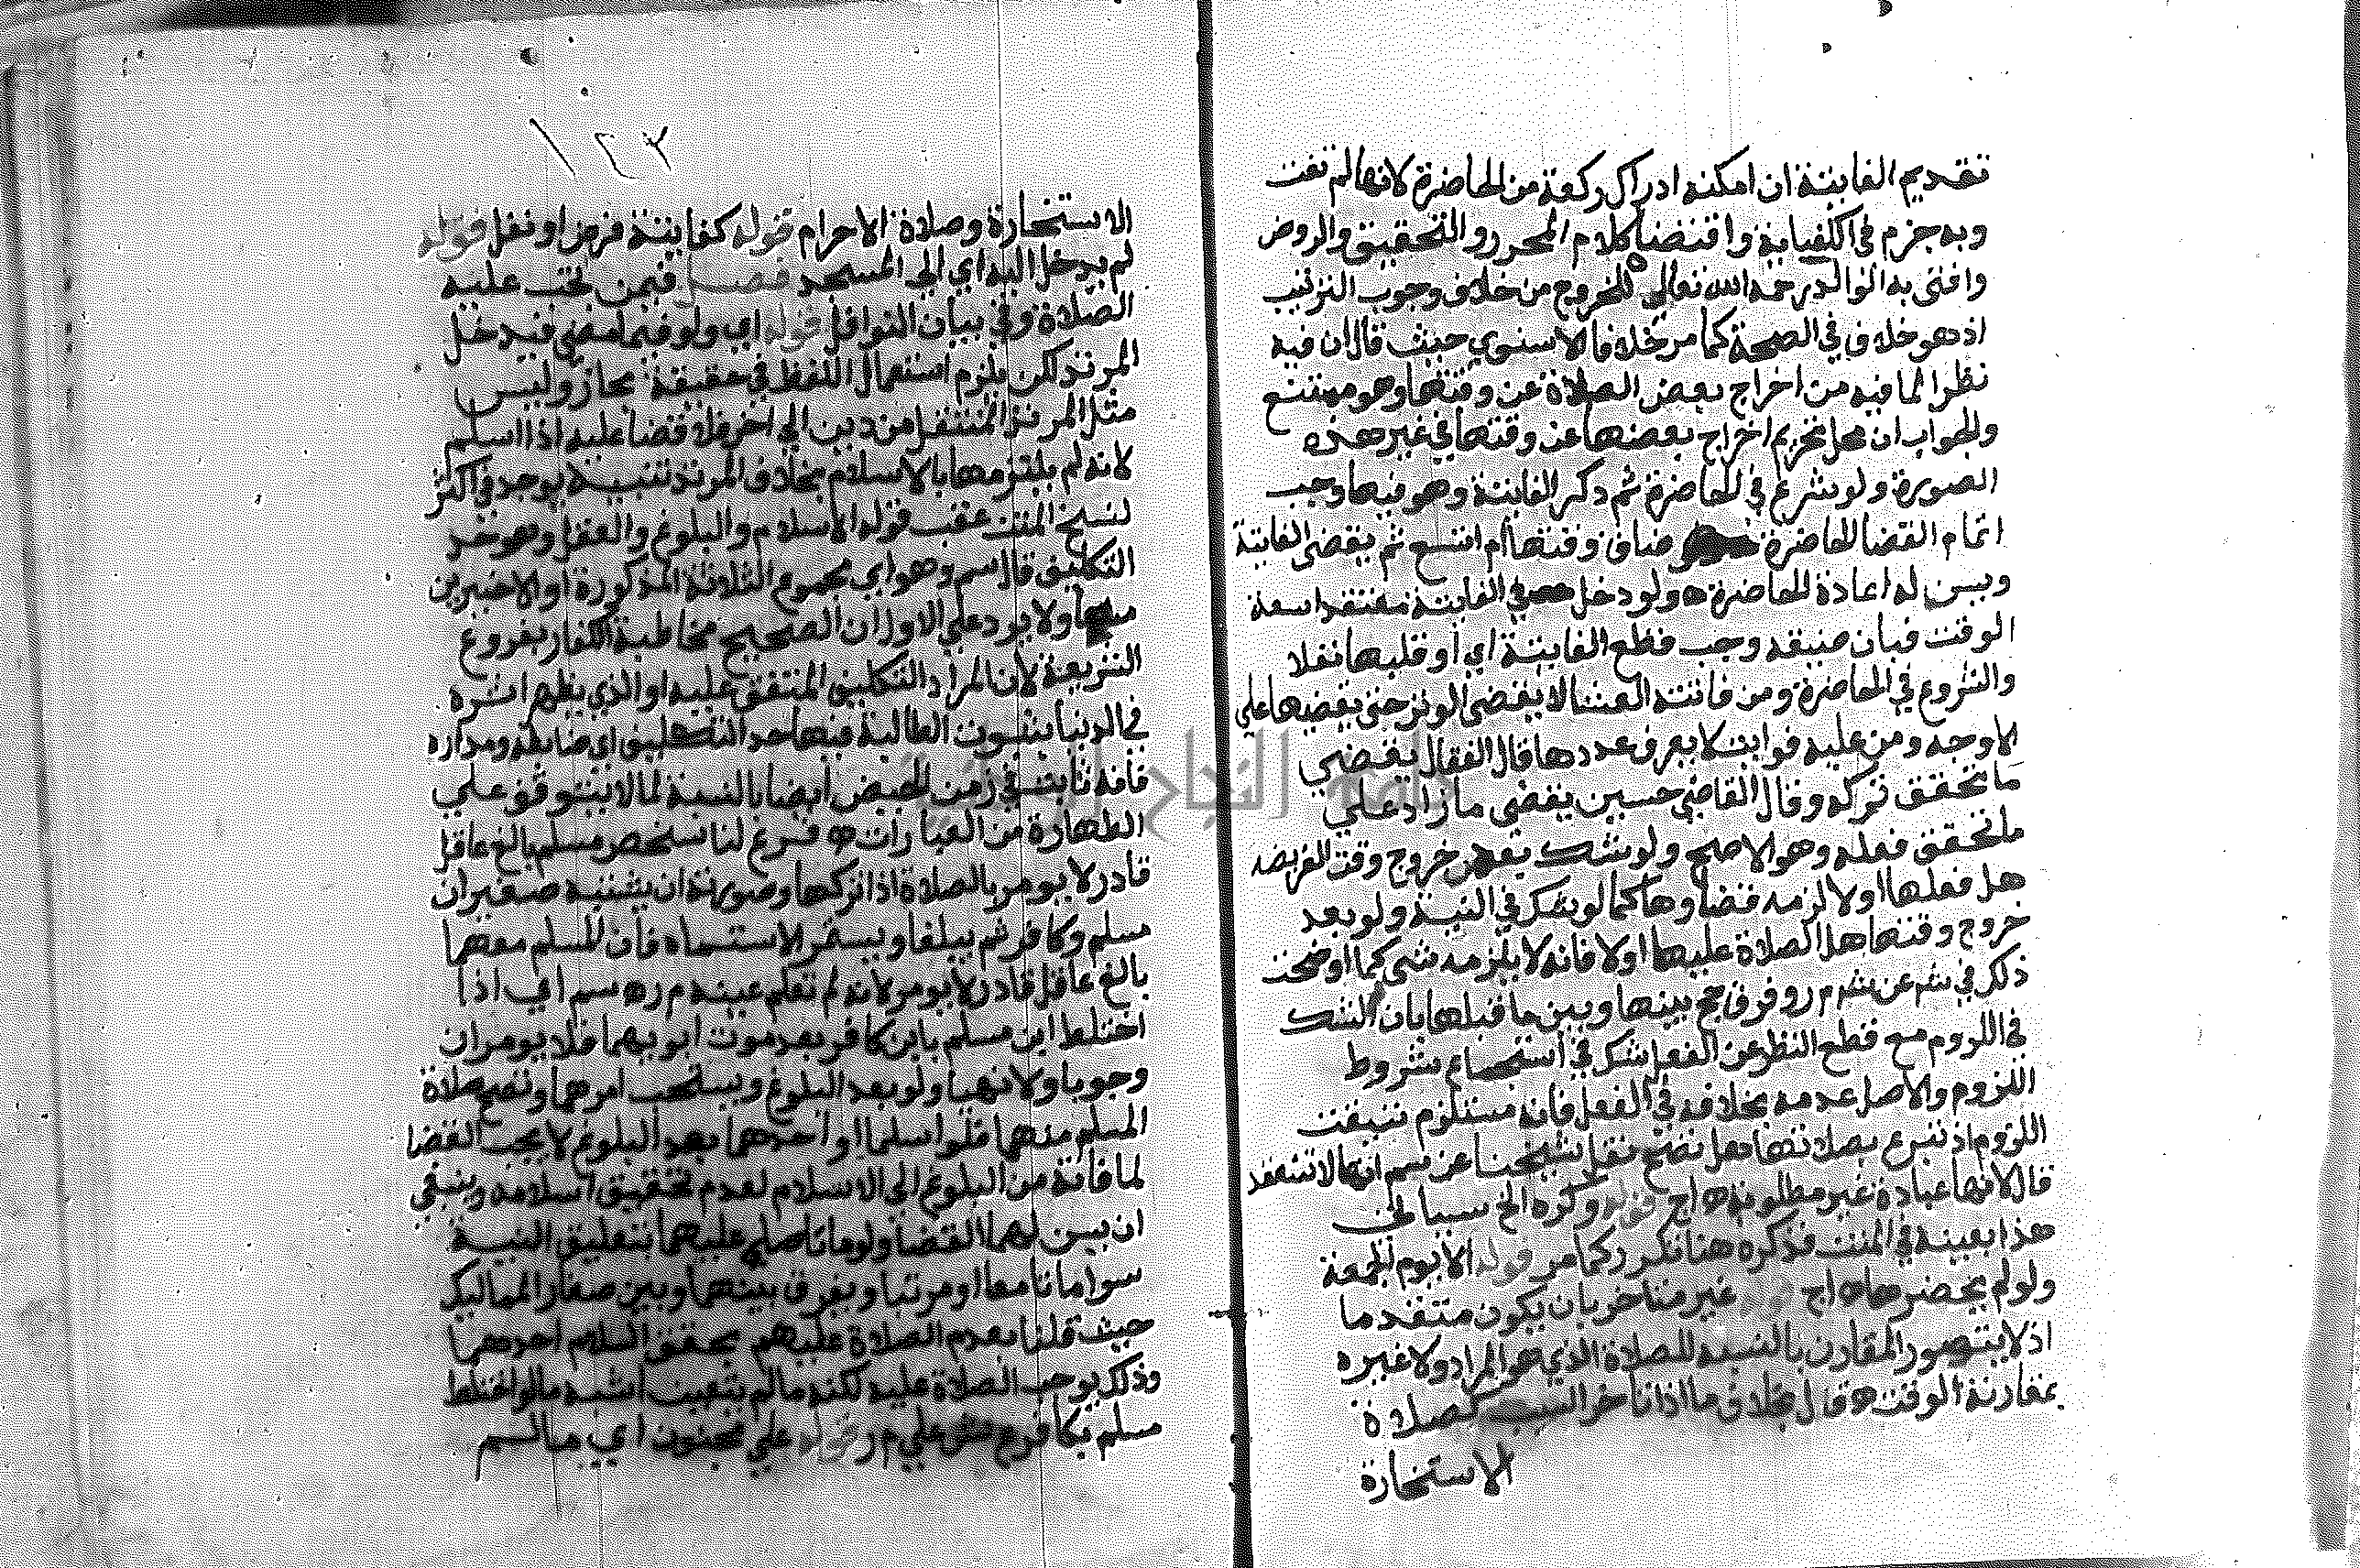 تقديم الفايتة ان امكنه ادراك ركعة من الحاضرة لانها لم تفت
وبه جزم في الكفاية واقتضاه كلام المحرر والتحقيق والروض
وافتى به الوالد رحمه الله تعالي للخروج من خلاف وجوب الترتيب
اذ هو خلاف في الصحة كما مر خلافا للاسنوي حيث قال ان فيه
نظرا لما فيه من اخراج بعض الصلاة عن وقتها وهو ممتنع
والجواب ان محل تحريم اخراج بعضها عن وقتها في غير هذه
الصورة ولو شرع في الحاضرة ثم ذكر الفايتة وهو فيها وجب
اتمام القضا الحاضرة ضاق وقتها أم اتسع ثم يقضى الفايتة
ويسن له اعادة الحاضرة ه ولو دخل في الفايتة معتقدا سعة
الوقت فبان ضيقه وجب قطع الفايتة اي او قلبها نفلا
والشروع في الحاضرة ومن فاتته العشا لا يقضى الوتر حتى يقضيها علي
الاوجه ومن عليه فوايت لا يعرف عددها قال القفال يقضي
ما تحقق تركه وقال القاضي حسين يقضى ما زاد علي
ما تحقق فعله وهو الاصح ولو شك بعد خروج وقت الفريضه
هل فعلها او لا لزمه قضاوها كما لو شك في النية ولو بعد
خروج وقتها هل الصلاة عليها او لا فانه لا يلزمه شى كما اوضحت
ذلك في شم عن شرح م ر وفرق حج بينها وبين ما قبلها بان الشك
في اللزوم مع قطع النظر عن الفعل شك في استجماع شروط
اللزوم والاصل عدمه بخلافه في الفعل فانه مستلزم تتيقت
اللزوم اذ تبرع بصلاتها هل تصح نقل شيخنا عن سم انها لا تنعقد
قال لانها عبادة غير مطلوبة ه اج قوله وكره الخ سياتي
هذا بعينه في المتن فذكره هنا تكرر كما مر قوله الا يوم الجمعة
ولو لم يحضرها ه اج غير متاخر بان يكون متقدما
اذ لا يتصور المقارن بالنسبة للصلاة الذي هو المراد ولا غيره
بمقارنة الوقت ه قال بخلاف ما اذا تاخر السبب كصلاة
الاستخارة
١٢٢
الاستخارة وصلاة الاحرام قوله كفايتة فرض او نفل قوله
لم يدخل اليه اي الي المسجد فصل فيمن تجب عليه
الصلاة وفي بيان النوافل قوله اي ولو فيما مضى فيدخل
المرتد لكن يلزم استعمال اللفظ في حقيقة مجاز وليس
مثل المرتد المنتقل من دين الي اخر فلا قضا عليه اذا اسلم
لانه لم يلتزمها بالاسلام بخلاف المرتد تنبيه يوجد في اكثر
نسخ المتن عقب قوله الاسلام والبلوغ والعقل وهو حد
التكليف قال سم وهو اي مجموع الثلاثة المذكورة او الاخيرين
منها ولا يرد علي الاول ان الصحيح مخاطبة الكفار بفروع
الشريعة لان المراد التكليف المتفق عليه او الذي يظهر اثره
في الدنيا بثبوت الطالبة فيها حد التكليف اي ضابطه ومداره
فانه ثابت في زمن الحيض ايضا بالنسبة لما لا يتوقف علي
الطهارة من العبارات ه فرع لنا شخص مسلم بالغ عاقل
قادر لا يومر بالصلاة اذا تركها وصورته ان يشتبه صغيران
مسلم وكافر ثم يبلغا ويستمر الاستباه فان المسلم معهما
بالغ عاقل قادر لا يومر لانه لم تعلم عينه م ر ه سم اي اذا
اختلط ابن مسلم بابن كافر بعد موت ابويهما فلا يومران
وجوبا ولا نهيا ولو بعد البلوغ ويستحب امرهما وتصح صلاة
المسلم منهما فلو اسلما او احدهما بعد البلوغ لا يجب القضا
لما فاته من البلوغ الى الاسلام لعدم تحقيق اسلامه وينبغي
ان يسن لهما القضا ولو ماتا صلي عليهما بتعليق النية
سوا ماتا معا او مرتبا ويفرق بينهما وبين صغار المماليك
حيث قلنا بعدم الصلاة عليهم بحقق اسلام احدهما
وذلك يوجب الصلاة عليه لكنه ما لم يتعين اشبه ما لو اختلط
مسلم بكافر ع ش علي م ر قوله علي مجنون اي ما لم